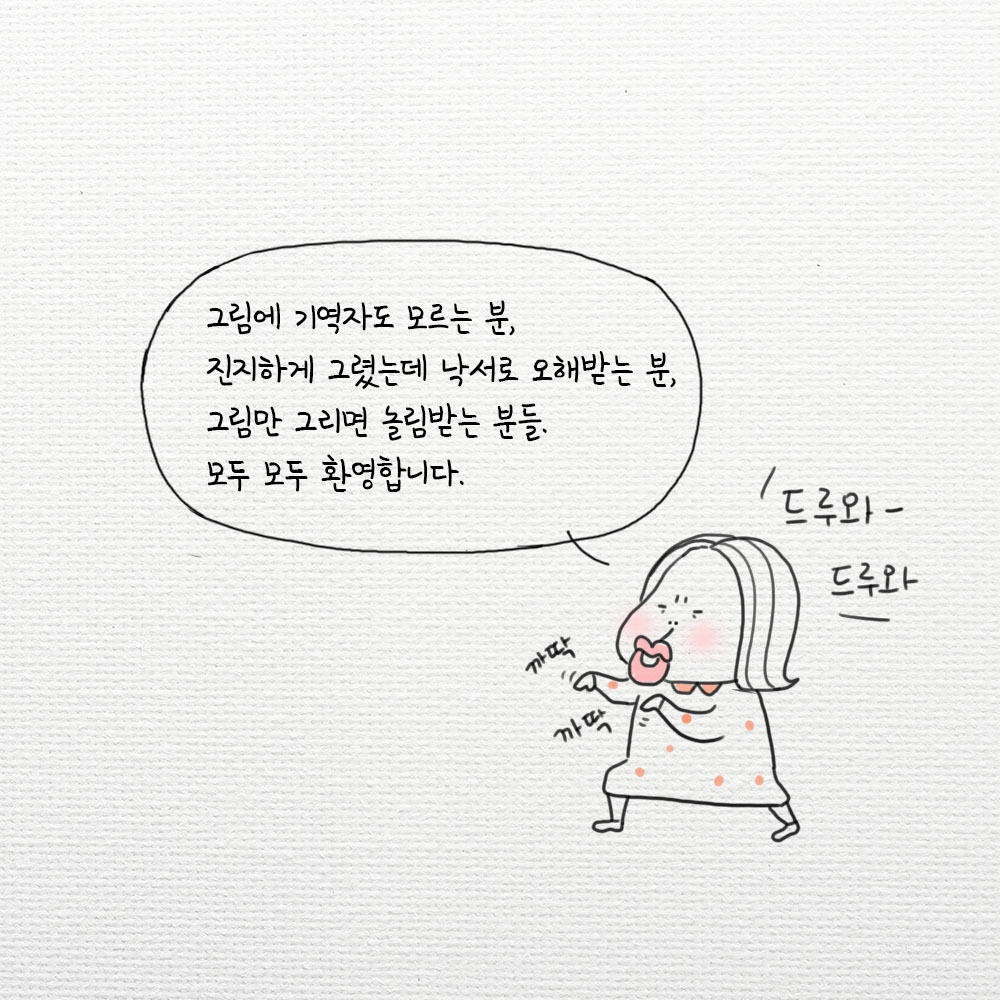 그림에 기역자도 모르는 분,
진지하게 그렸는데 낙서로 오해받는 분,
그림만 그리면 놀림받는 분들.
모두 모두 환영합니다.
드루와-
드루와
까딱
까딱